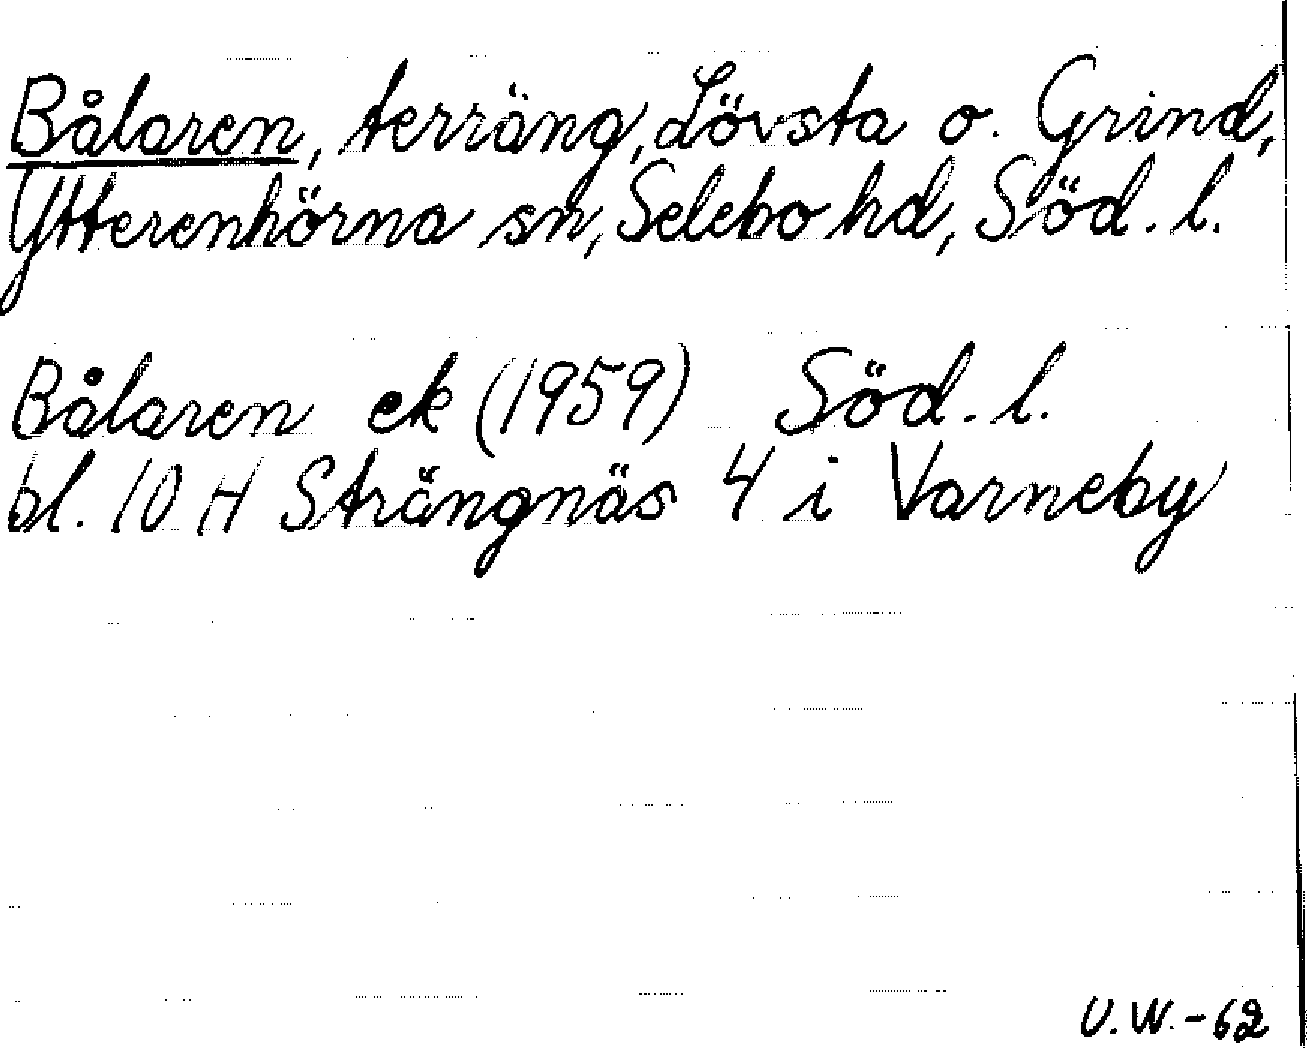 Bålaren, terräng, Lövsta o. Grind,
Ytterenhörna sn, Selebo hd, Söd. l.
Bålaren ek (1959) Söd. l.
bl. 10 H Strängnäs 4 i Varneby
U.W.-62